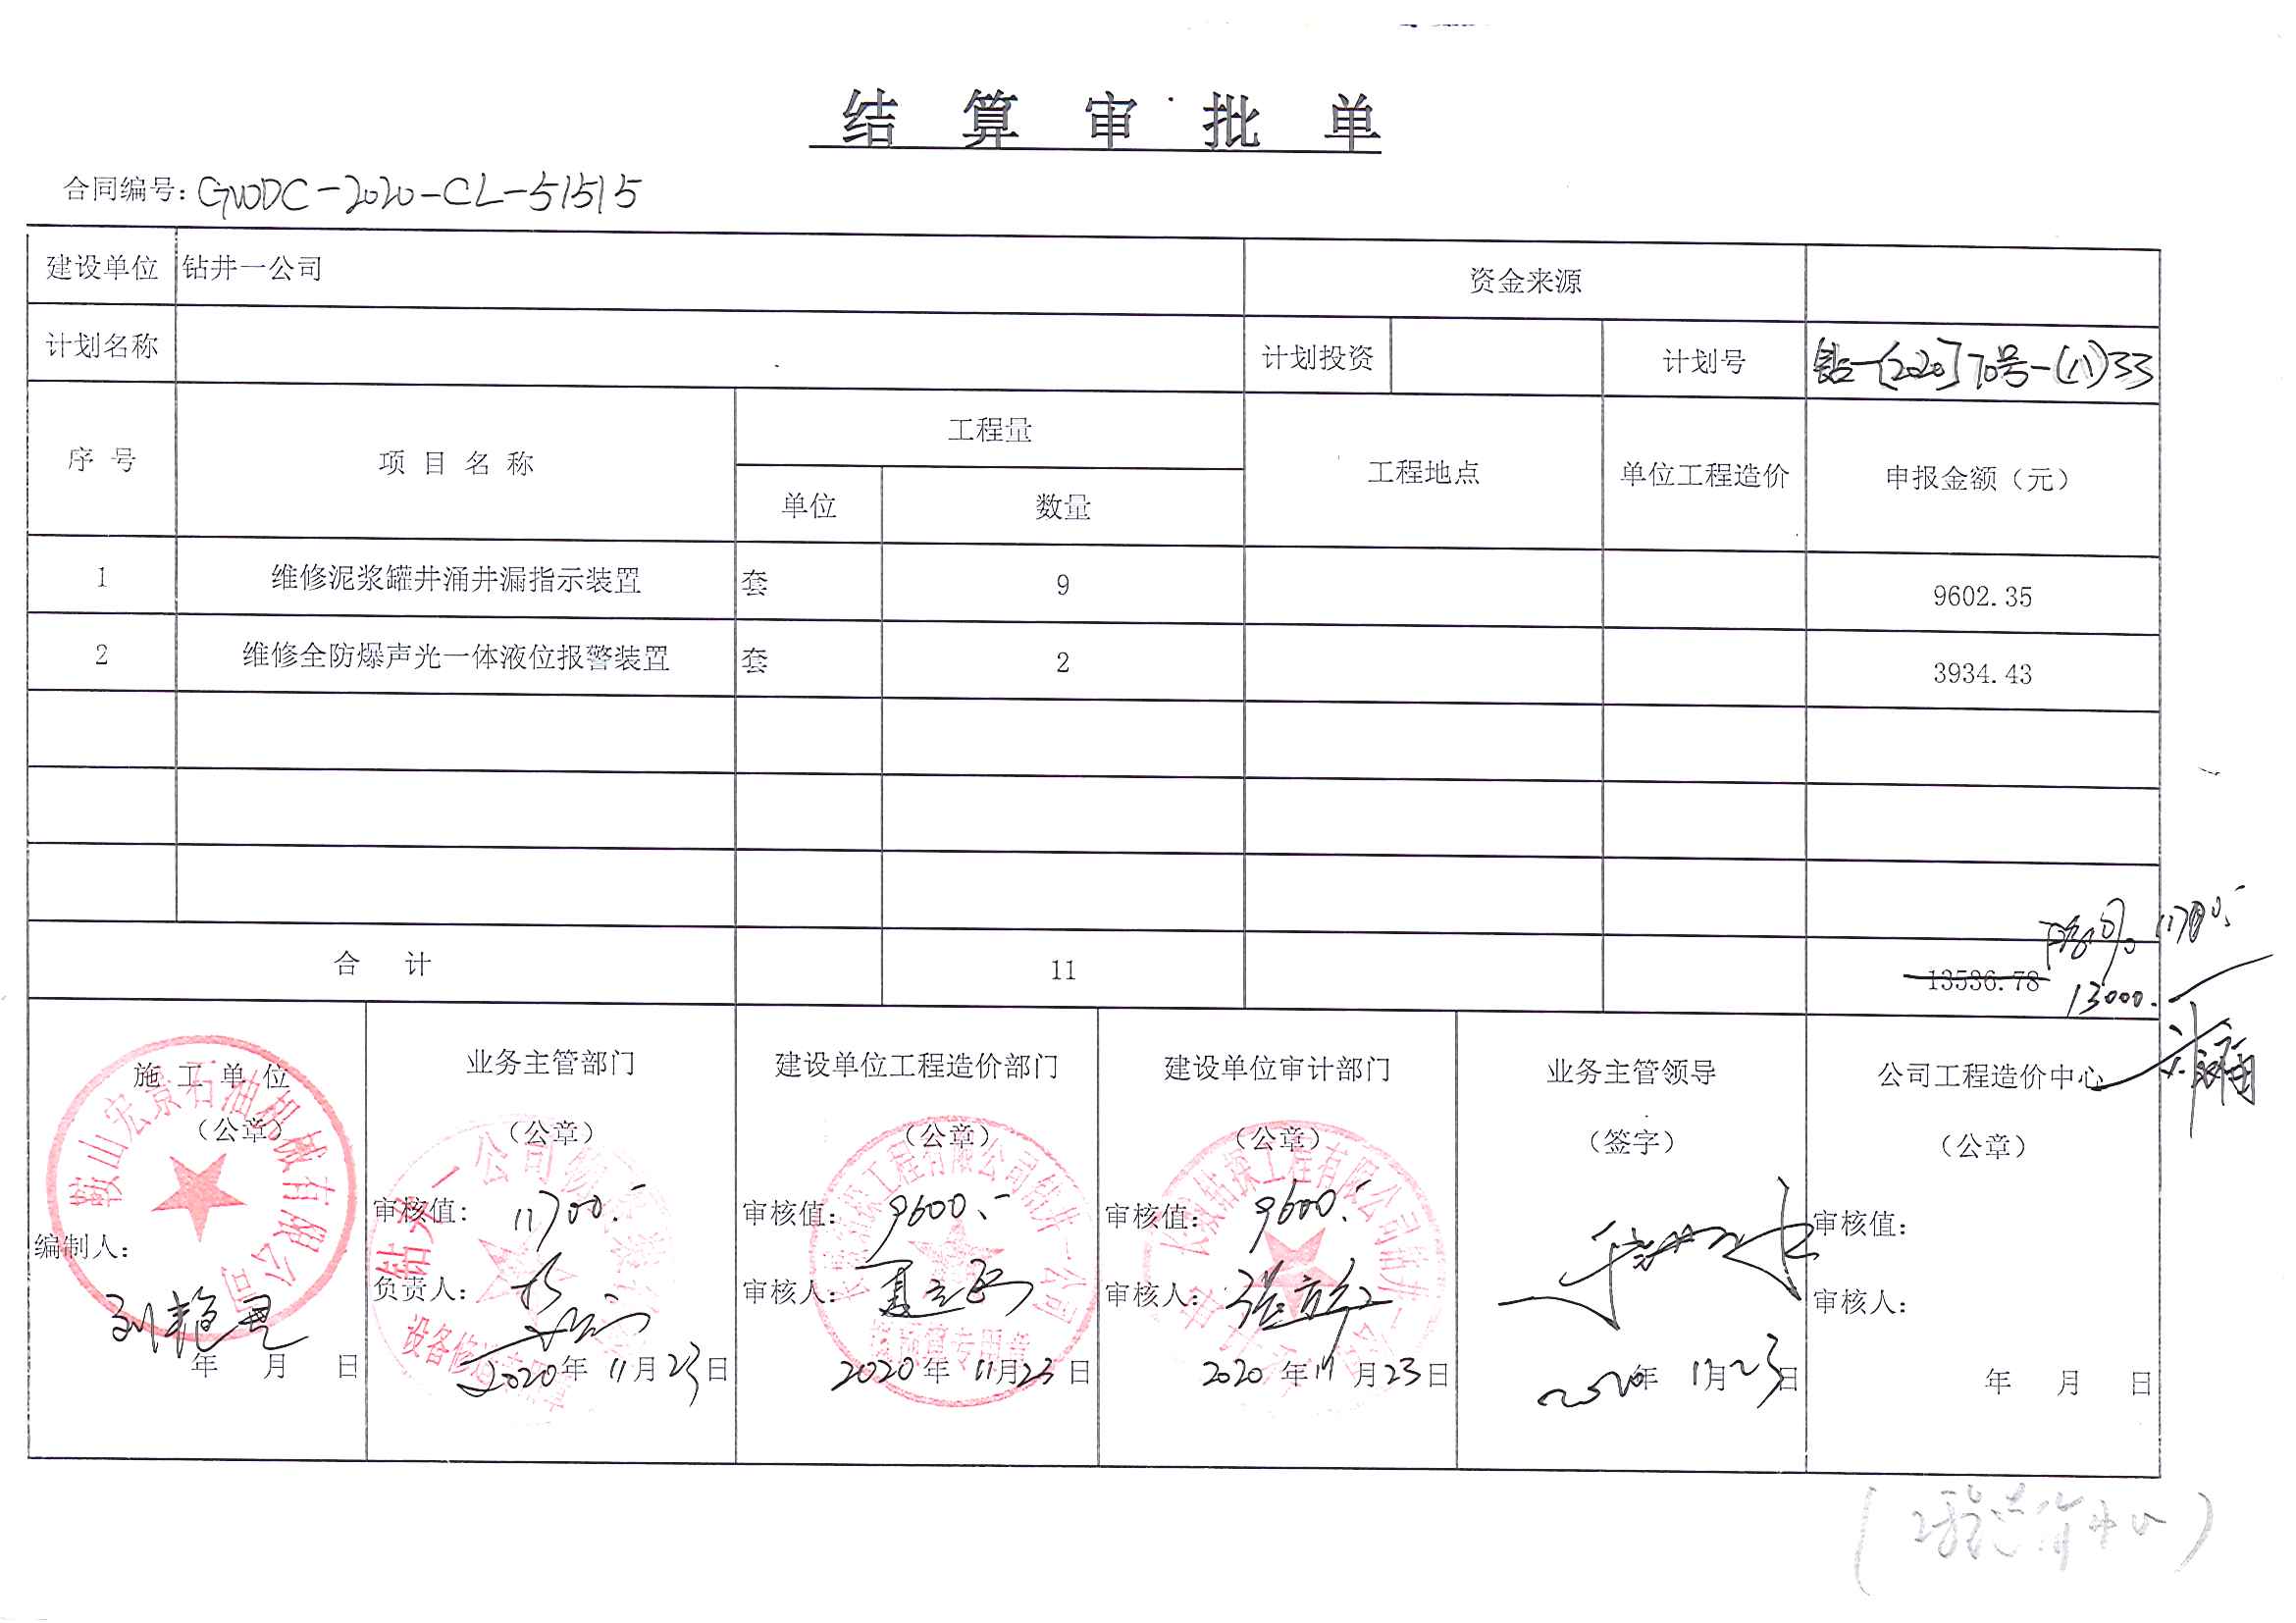 结算审批单
合同编号：GWDC-2020-CL-51515
建设单位 钻井一公司 资金来源
计划名称 计划投资 计划号 钻一〔2020〕70号-(八)33
序号 项目名称 工程量 工程地点 单位工程造价 申报金额（元）
单位 数量
1 维修泥浆罐井涌井漏指示装置 套 9 9602.35
2 维修全防爆声光一体液位报警装置 套 2 3934.43
11700.-
合计 11 13536.78
13000.-
施工单位 业务主管部门 建设单位工程造价部门 建设单位审计部门 业务主管领导 公司工程造价中心
（公章） （公章） （公章） （公章） （签字） （公章）
鞍山宏景石油机械有限公司
钻井一公司
设备修造专用章
长城钻探工程有限公司钻井一公司
预结算专用章
长城钻探工程有限公司钻井一公司
审核值：11700.- 审核值：9600.- 审核值：9600.- 审核值：
编制人： 负责人： 审核人： 审核人： 审核人：
年 月 日 2020年11月23日 2020年11月23日 2020年11月23日 2020年11月23日 年 月 日
（工程造价中心）